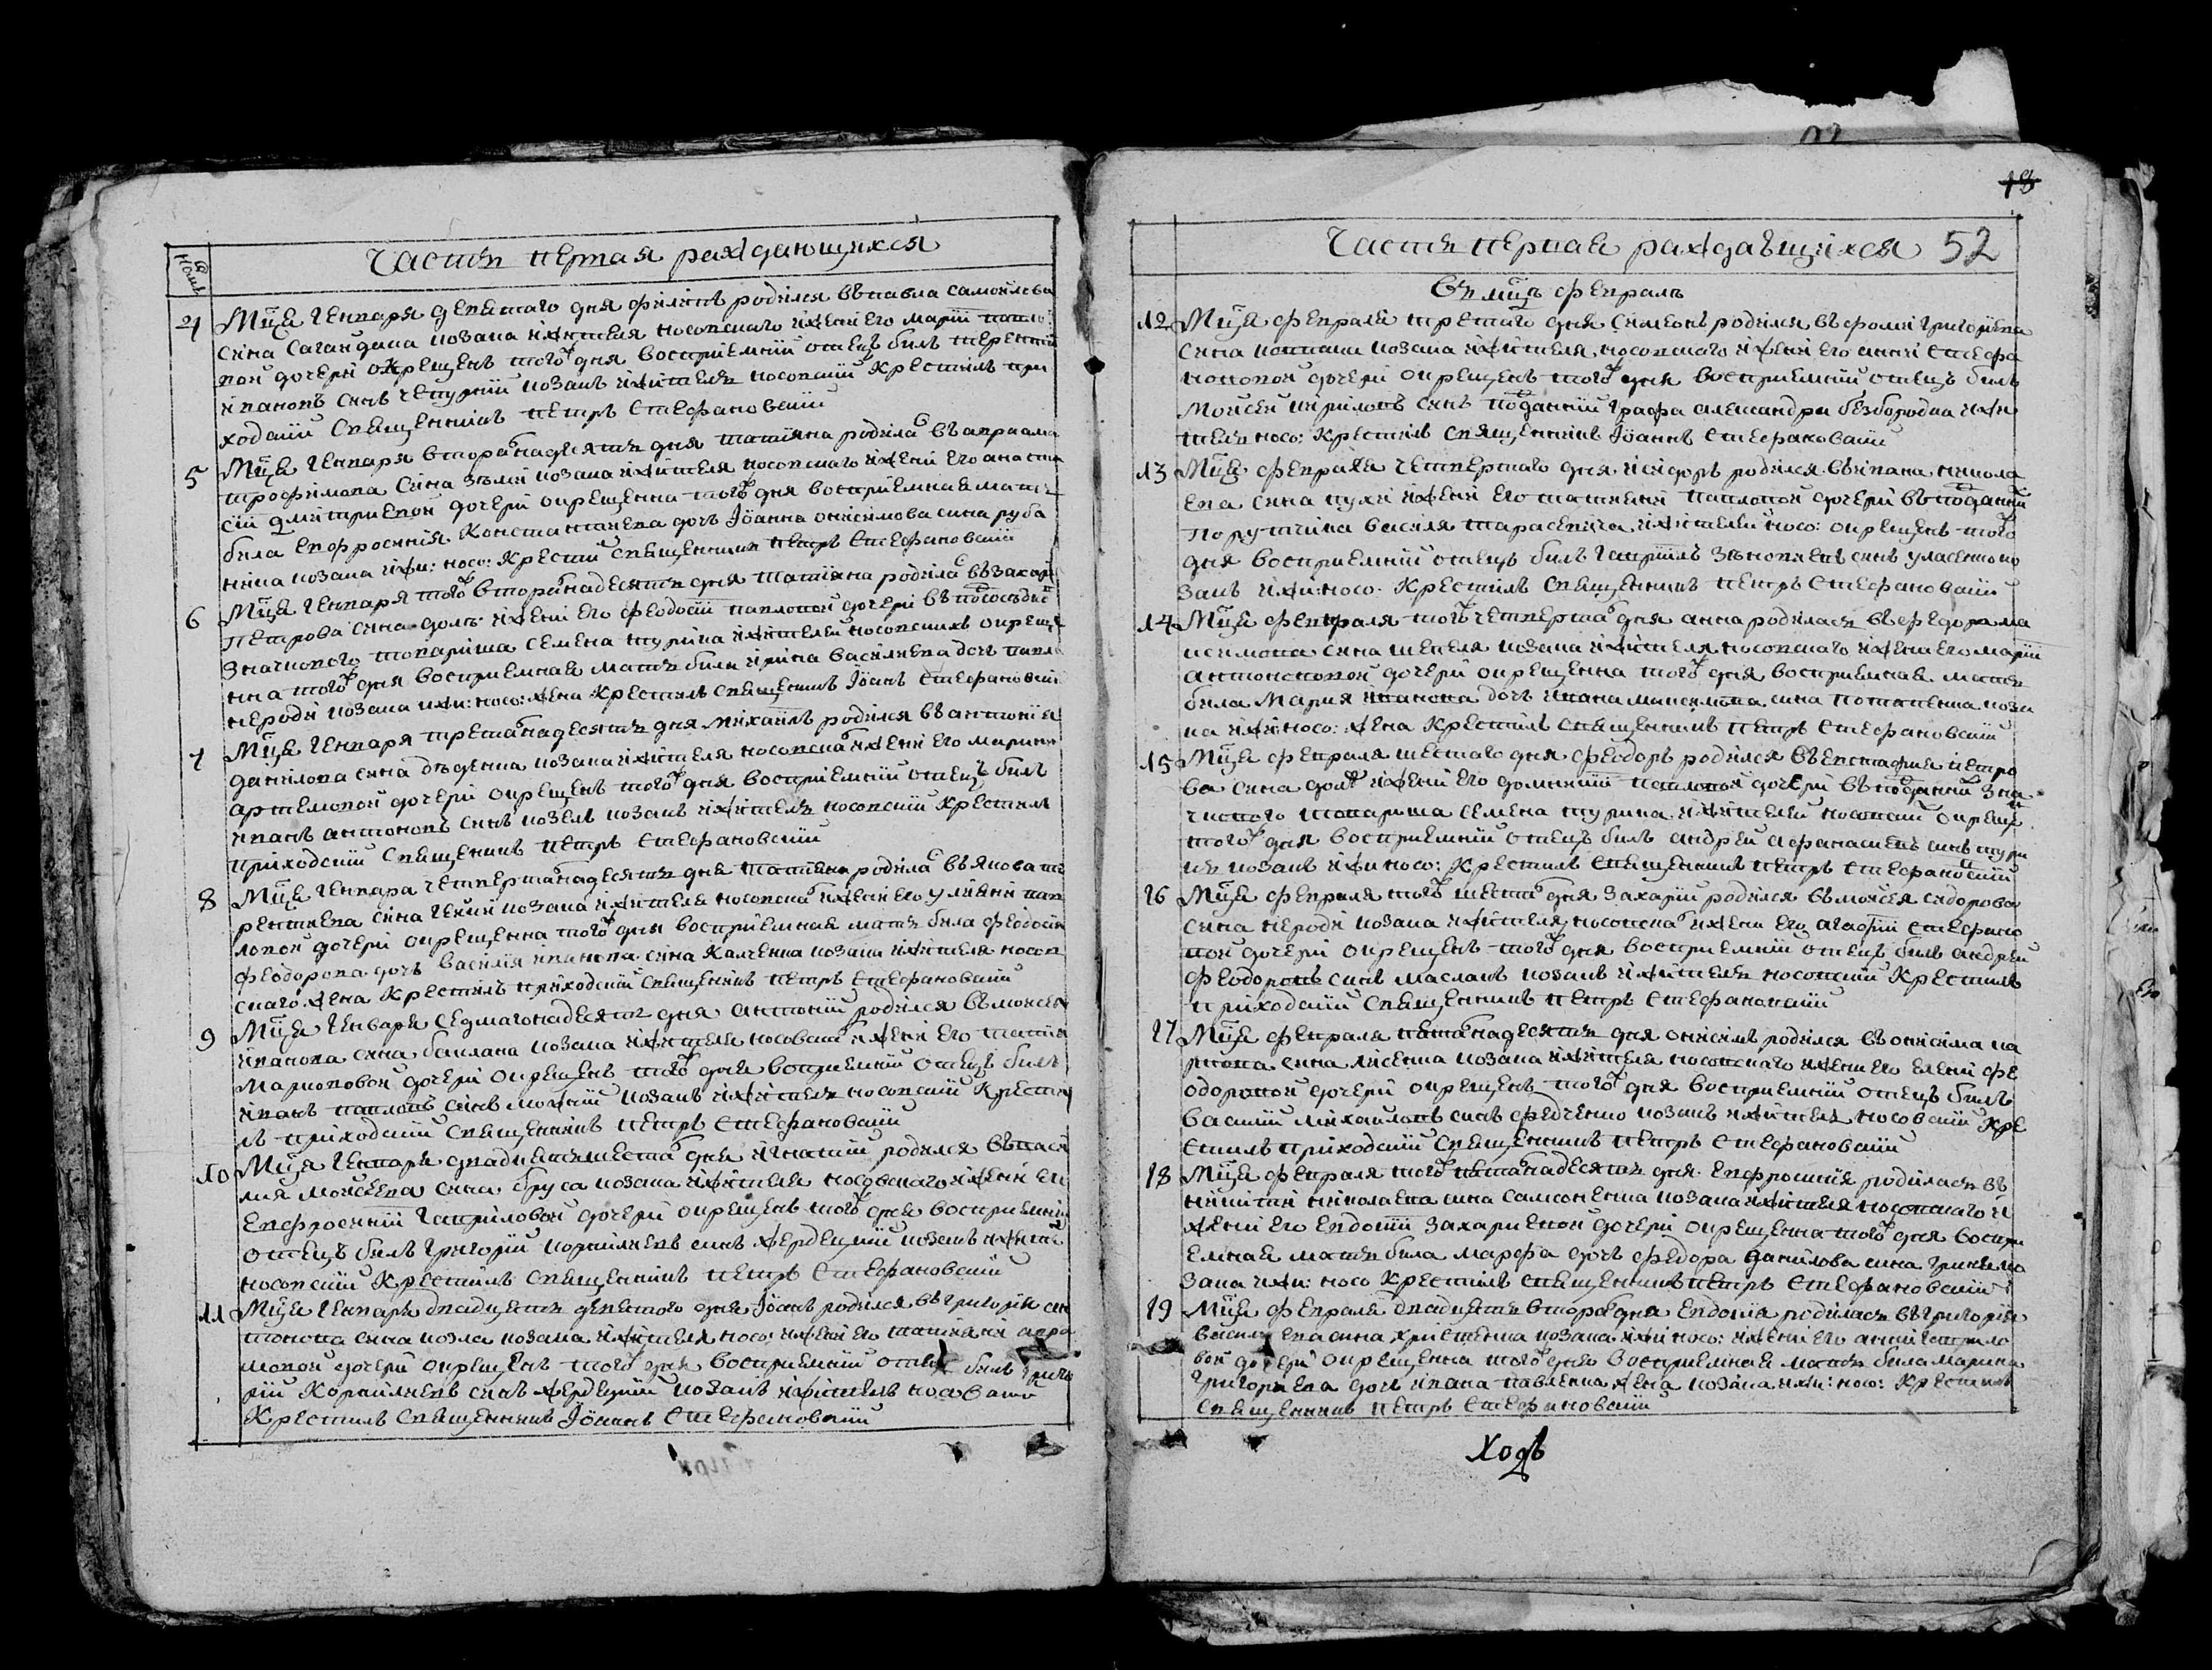 Часть первая раждающихся
4 Мца генваря девятаго дня филипъ родился въ павла самойлова
сина Сагайдака козака жителя носовского и жени его марiи павло
вой дочери окрещенъ того дня восприемнiй отецъ билъ терентiй
ивановъ синъ козакъ житель носовскiй крестилъ при
ходскiй священникъ петръ Стефановскiй
5 Мца генваря второнадесять дня татiяна родила въ авраама
трофимова сина козака жителя носовского и жени его анаста
сiи дмитриевой дочери окрещенна того дня восприемная мать
била Евфросинiя Константинева дочь Iоанна онисимова сина руба
на козака жи: носо: крести священникъ петръ Стефановскiй
6 Мца генваря того второнадесять дня татiяна родила въ захарiи
петрова сина и жени его феодосiи павловой дочери въ
значкового товариша семена турина жителей носовскихъ окреще
нна того дня восприемная мать била ирина василиева дочь павла
нероди козака жи: носо: жена крестилъ священникъ Iоанъ Стефановскiй
7 Мца генваря третанадесять дня михаилъ родился въ антонiя
данiлова сина дѣденка козака жителя носовска и жени его марини
артемовой дочери окрещенъ того дня восприемнiй отецъ билъ
иванъ антоновъ синъ козелъ козакъ житель носовскiй крестил
приходскiй священникъ петръ Стефановскiй
8 Мца генвара четвертанадесять дня татiяна родила въ якова те
рентиева сина козака жителя носовска и жени его улiянi пав
ловой дочери окрещенна того дня восприемная мать била феодосiя
феодорова дочь василiя иванова сина Калченка козака жителя носов
ского жена крестилъ приходскiй священикъ петръ Стефановскiй
9 Мца генваря седмагонадесять дня антонiй родился въ мойсея
иванова сина баклана козака жителя носовски и жени его татiя
марковой дочери окрещенъ того дня восприемнiй отецъ билъ
иванъ павловъ синъ козакъ житель носовскiй крести
лъ приходскiй священникъ петръ Стефановскiй
10 Мца генваря двадцятьшеста дня игнатiй родился въ васи
лия мойсеева сина бруса козака жителя носовского и жени его
Евфросинiи гавриловой дочери окрещенъ того дня восприемнiй
отецъ билъ григорiй корнилиевъ синъ жердецкiй козакъ жител
носовскiй крестилъ священникъ петръ Стефановскiй
11 Мца генваря двадцять девятого дня Iоанъ родился въ григорiя ан
тонова сина козла козака жителя носо: и жени его татiяни авра
мовой дочери окрещенъ того дня восприемнiй отецъ билъ григо
рiй Корнилиевъ синъ жердецкiй козакъ житель носовскiй
Крестилъ священникъ Iоаннъ Стефановскiй
18
Часть первая раждающихся 52
Въ мцъ февралъ
12 Мца февраля третаго дня Симеонъ родился въ фоми григорiева
сина козака жителя носовского и жени его анни стефа
новой дочери окрещенъ того дня восприемнiй отецъ билъ
мойсей кириловъ синъ подданнiй графа александра безбородка жи
тель носо: крестилъ священникъ Iоаннъ Стефановскiй
13 Мца февраля четвертаго дня исидоръ родился въ ивана никола
ева сина и жени его татияни павловой дочери въ подданнiй
порутчика василя тарасевича жителей носо: окрещенъ того
дня восприемнiй отецъ билъ гаврiилъ зѣновиевъ синъ уласенко ко
закъ жи: носо: крестилъ священникъ петръ Стефановскiй
14 Мца февраля того четверта дня анна родилась въ федора ма
ксимова сина шевеля козака жителя носовского и жени его марiи
антоновой дочери окрещенна того дня восприемная мать
била мария иванова дочь ивана сина потапенка коза
ка жи: носо: жена крестилъ священникъ петръ Стефановскiй
15 Мца февраля шестаго дня феодоръ родился въ евстафия петро
ва сина и жени его домникiи павловой дочери въ подданнiй зна
чкового товариша семена турина жителей носовскiй окреще
того дня восприемнiй отецъ билъ андрей афанасиевъ синъ тури
къ козакъ жи: носо: крестилъ священникъ петръ Стефановскiй
16 Мца февраля того шеста дня захарiй родился въ мойсея сидорова
сина нероди козака жителя носовска и жени его агафiи стефано
вой дочери окрещенъ того дня восприемнiй отецъ билъ андрей
феодоровъ синъ маслакъ козакъ житель носовскiй крестилъ
приходскiй священникъ петръ Стефановскiй
17 Мца февраля пятанадесять дня онисимъ родился въ онисима ка
рпова сина лисенка козака жителя носовского и жени его еленi фе
одоровой дочери окрещенъ того дня восприемнiй отецъ билъ
василiй михайловъ синъ федченко козакъ житель носовскiй кре
стилъ приходскiй священникъ петръ Стефановскiй
18 Мца февраля того пятанадесять дня Евфросинiя родилась въ
никити николаева сина самсоненка козака жителя носовского и
жени его Евдокiи захариевой дочери окрещенна того дня воспри
емная мать била марфа дочь федора данилова сина ко
зака жи: носо крестилъ священникъ петръ Стефановскiй
19 Мца февраля двадцять второго дня Евдокiя родилась въ григорiя
василиева сина христенка козака жи: носо: и жени его анни гаврило
вой дочери окрещенна того дня восприемная мать била марина
григориева дочь ивана павленка жена козака жи: носо: крестилъ
священникъ петръ Стефановскiй
Ходъ